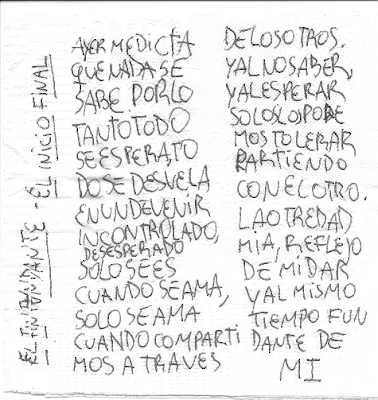 EL INICIO FINAL
AYER MEDICTA
QUE NADA SE
SABE POR LO
TANTO TODO
SE ESPERA, TO
DO SE DESVELA
EN UN DEVENIR
INCONTROLADO,
DESESPERADO
SOLO SE ES
CUANDO SE AMA,
SOLO SE AMA
CUANDO COMPARTI
MOS A TRAVES
DE LOS OTAOS.
Y AL NO SABER,
Y AL ESPERAR
SOLO SLO PODE
MOS TOLERAR
PARTIENDO
CON EL OTRO.
LA OTREDAD
MIA, REFLEJO
DE MI DAR
Y AL MISMO
TIEMPO FUN
DANTE DE
MI